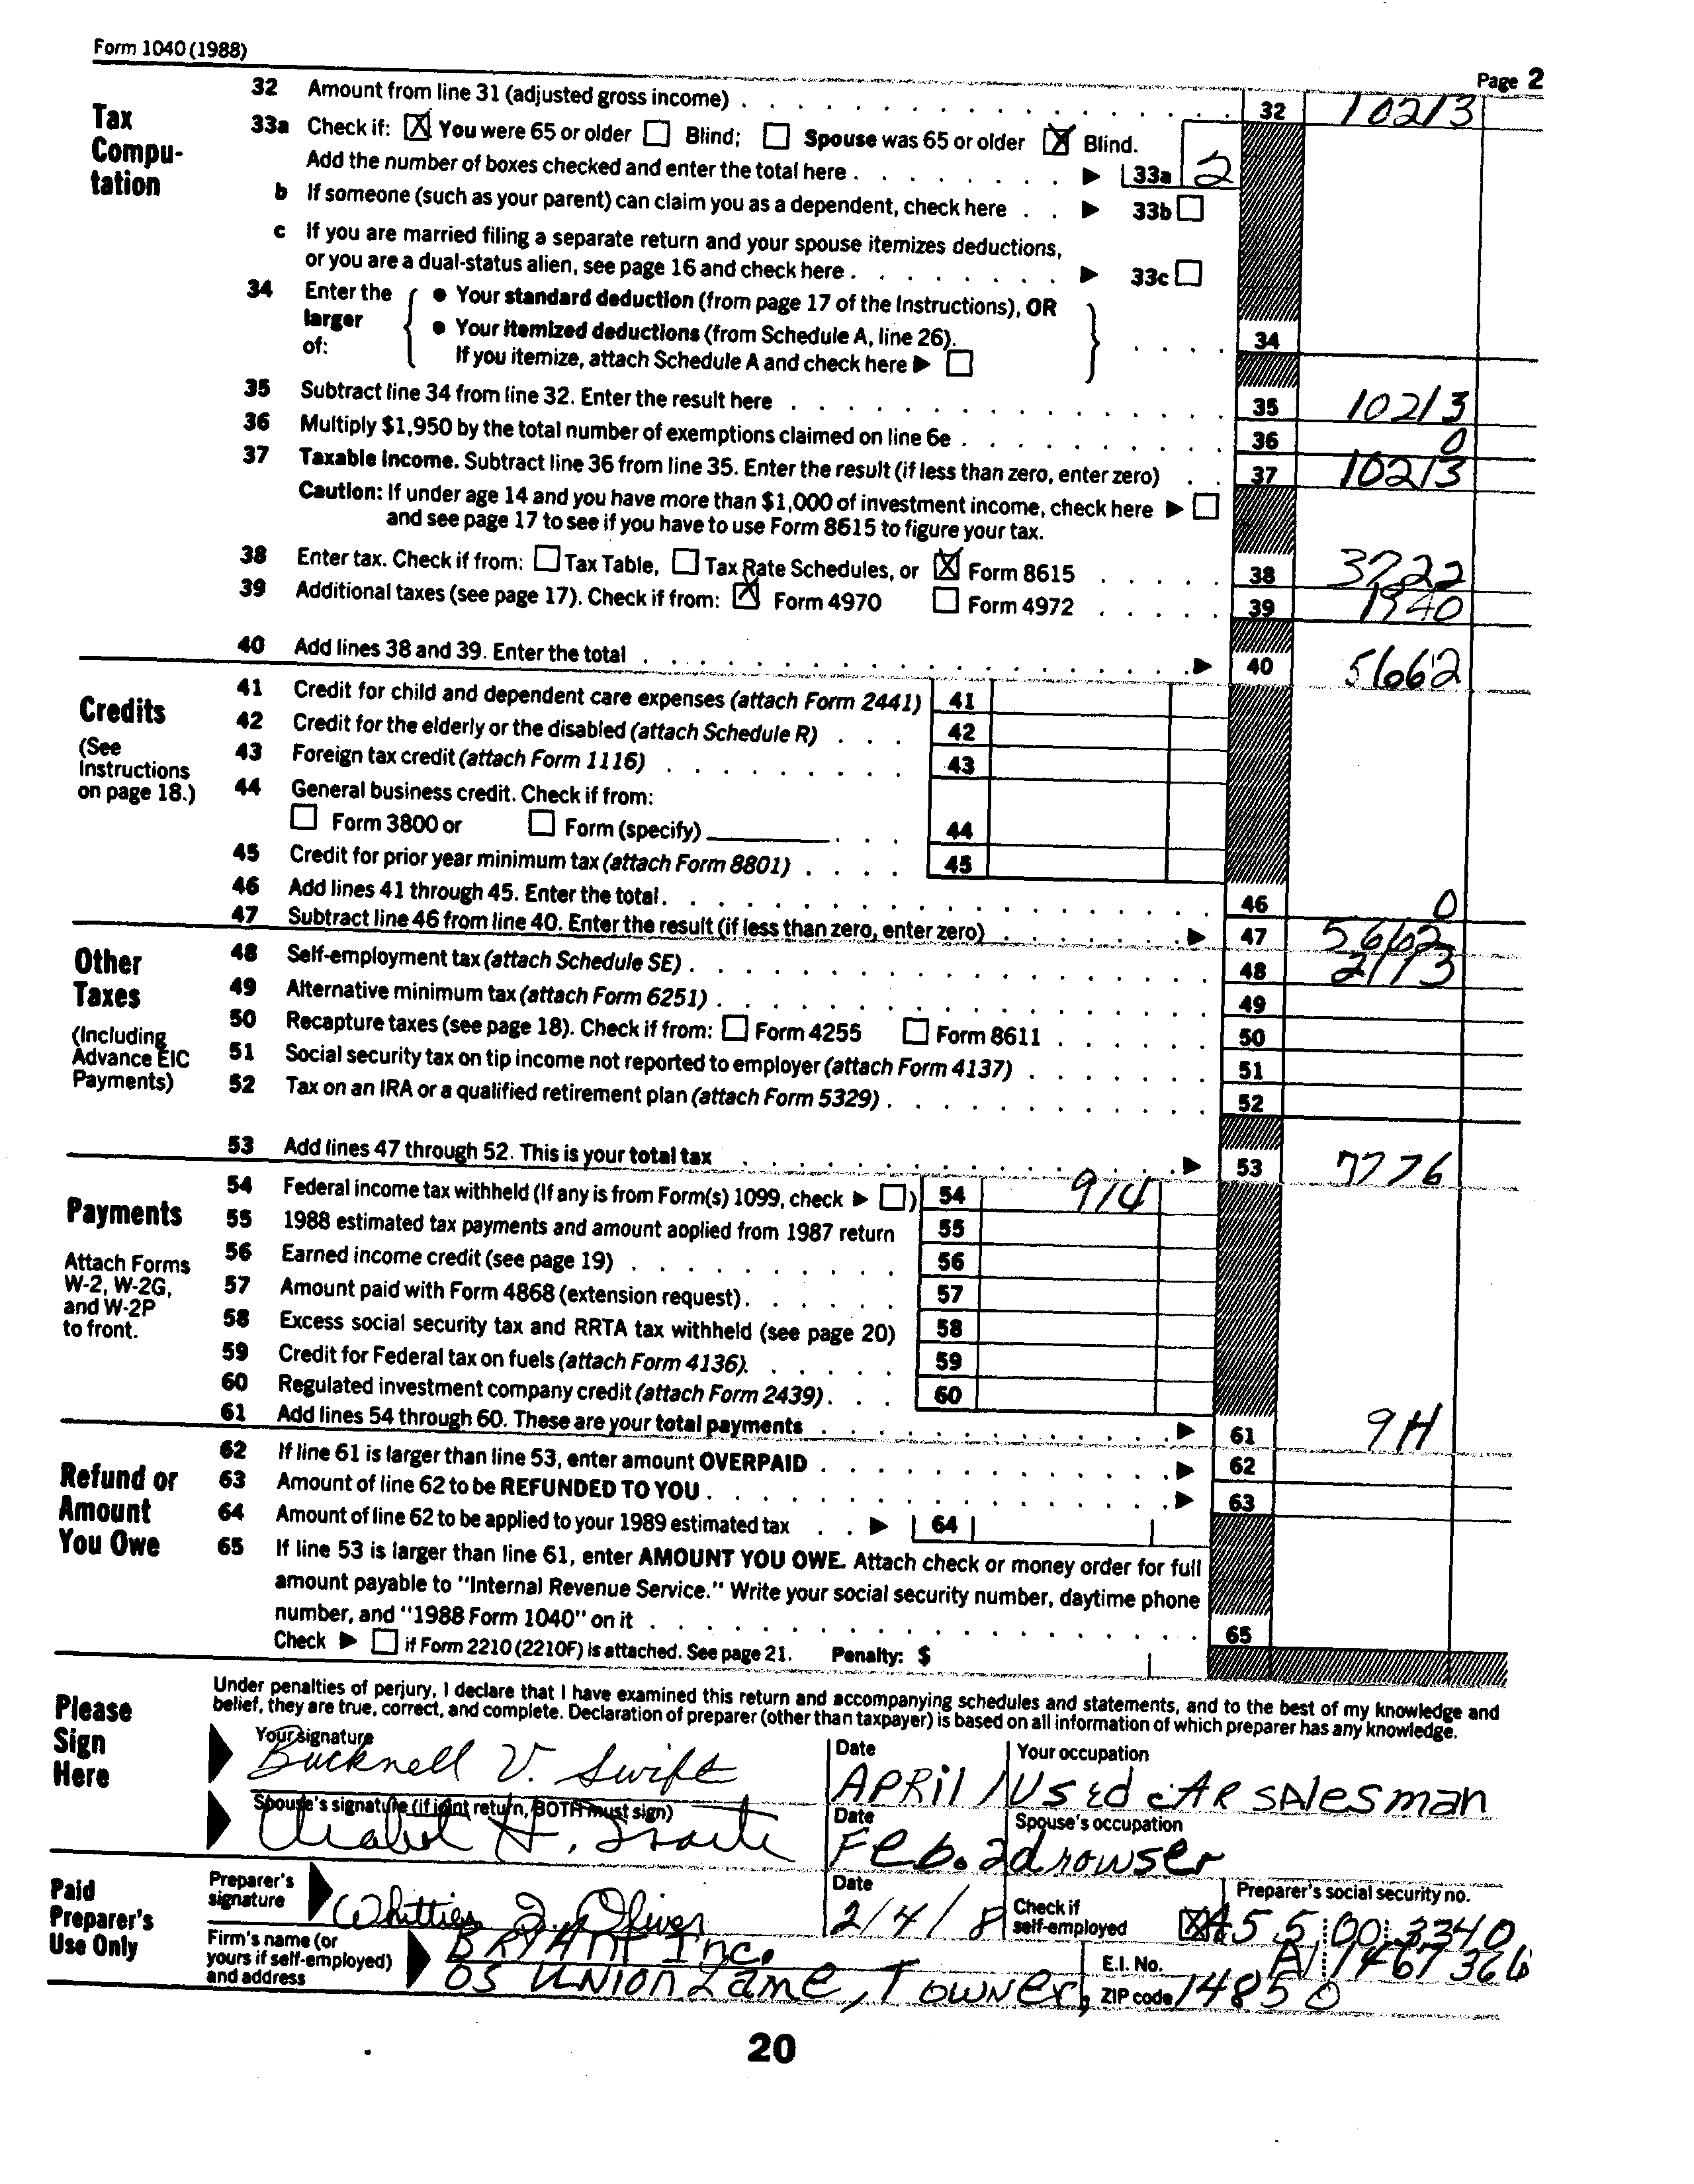 Form 1040 (1988)
Page 2
Tax Compu-tation
32 Amount from line 31 (adjusted gross income) . . . 32 10213
33a Check if: ☒ You were 65 or older ☐ Blind; ☐ Spouse was 65 or older ☒ Blind.
Add the number of boxes checked and enter the total here . . . ▶ 33a 2
b If someone (such as your parent) can claim you as a dependent, check here . . ▶ 33b ☐
c If you are married filing a separate return and your spouse itemizes deductions,
or you are a dual-status alien, see page 16 and check here . . . ▶ 33c ☐
34 Enter the larger of: { ● Your standard deduction (from page 17 of the Instructions), OR
● Your itemized deductions (from Schedule A, line 26).
If you itemize, attach Schedule A and check here ▶ ☐ } . . . . 34
35 Subtract line 34 from line 32. Enter the result here . . . 35 10213
36 Multiply $1,950 by the total number of exemptions claimed on line 6e . . . 36 0
37 Taxable income. Subtract line 36 from line 35. Enter the result (if less than zero, enter zero) . . 37 10213
Caution: If under age 14 and you have more than $1,000 of investment income, check here ▶ ☐
and see page 17 to see if you have to use Form 8615 to figure your tax.
38 Enter tax. Check if from: ☐ Tax Table, ☐ Tax Rate Schedules, or ☒ Form 8615 . . . 38 3722
39 Additional taxes (see page 17). Check if from: ☒ Form 4970 ☐ Form 4972 . . . 39 1940
40 Add lines 38 and 39. Enter the total . . . ▶ 40 5662
Credits
(See Instructions on page 18.)
41 Credit for child and dependent care expenses (attach Form 2441) 41
42 Credit for the elderly or the disabled (attach Schedule R) . . . 42
43 Foreign tax credit (attach Form 1116) . . . 43
44 General business credit. Check if from:
☐ Form 3800 or ☐ Form (specify) ________ . . . 44
45 Credit for prior year minimum tax (attach Form 8801) . . . . 45
46 Add lines 41 through 45. Enter the total . . . 46 0
47 Subtract line 46 from line 40. Enter the result (if less than zero, enter zero) . . . ▶ 47 5662
Other Taxes
(Including Advance EIC Payments)
48 Self-employment tax (attach Schedule SE) . . . 48 2113
49 Alternative minimum tax (attach Form 6251) . . . 49
50 Recapture taxes (see page 18). Check if from: ☐ Form 4255 ☐ Form 8611 . . . 50
51 Social security tax on tip income not reported to employer (attach Form 4137) . . . 51
52 Tax on an IRA or a qualified retirement plan (attach Form 5329) . . . 52
53 Add lines 47 through 52. This is your total tax . . . ▶ 53 7776
Payments
Attach Forms W-2, W-2G, and W-2P to front.
54 Federal income tax withheld (If any is from Form(s) 1099, check ▶ ☐) 54 914
55 1988 estimated tax payments and amount applied from 1987 return 55
56 Earned income credit (see page 19) . . . 56
57 Amount paid with Form 4868 (extension request) . . . 57
58 Excess social security tax and RRTA tax withheld (see page 20) 58
59 Credit for Federal tax on fuels (attach Form 4136). . . . 59
60 Regulated investment company credit (attach Form 2439) . . . 60
61 Add lines 54 through 60. These are your total payments . . . ▶ 61 914
Refund or Amount You Owe
62 If line 61 is larger than line 53, enter amount OVERPAID . . . ▶ 62
63 Amount of line 62 to be REFUNDED TO YOU . . . ▶ 63
64 Amount of line 62 to be applied to your 1989 estimated tax . . ▶ 64
65 If line 53 is larger than line 61, enter AMOUNT YOU OWE. Attach check or money order for full
amount payable to "Internal Revenue Service." Write your social security number, daytime phone
number, and "1988 Form 1040" on it . . . 65
Check ▶ ☐ if Form 2210 (2210F) is attached. See page 21. Penalty: $
Please Sign Here
Under penalties of perjury, I declare that I have examined this return and accompanying schedules and statements, and to the best of my knowledge and
belief, they are true, correct, and complete. Declaration of preparer (other than taxpayer) is based on all information of which preparer has any knowledge.
Your signature Date Your occupation
Bucknell V. Swift APRil / Used cAR sAlesman
Spouse's signature (if joint return, BOTH must sign) Date Spouse's occupation
H. Feb. 2 drowser
Paid Preparer's Use Only
Preparer's signature Whittier J. Oliver Date 2/4/8 Check if self-employed ☒ Preparer's social security no. A55 00 3340
Firm's name (or yours if self-employed) and address BRYAnt Inc. E.I. No. A1 1467366
05 UNION Lame, Towner, ZIP code 14850
20